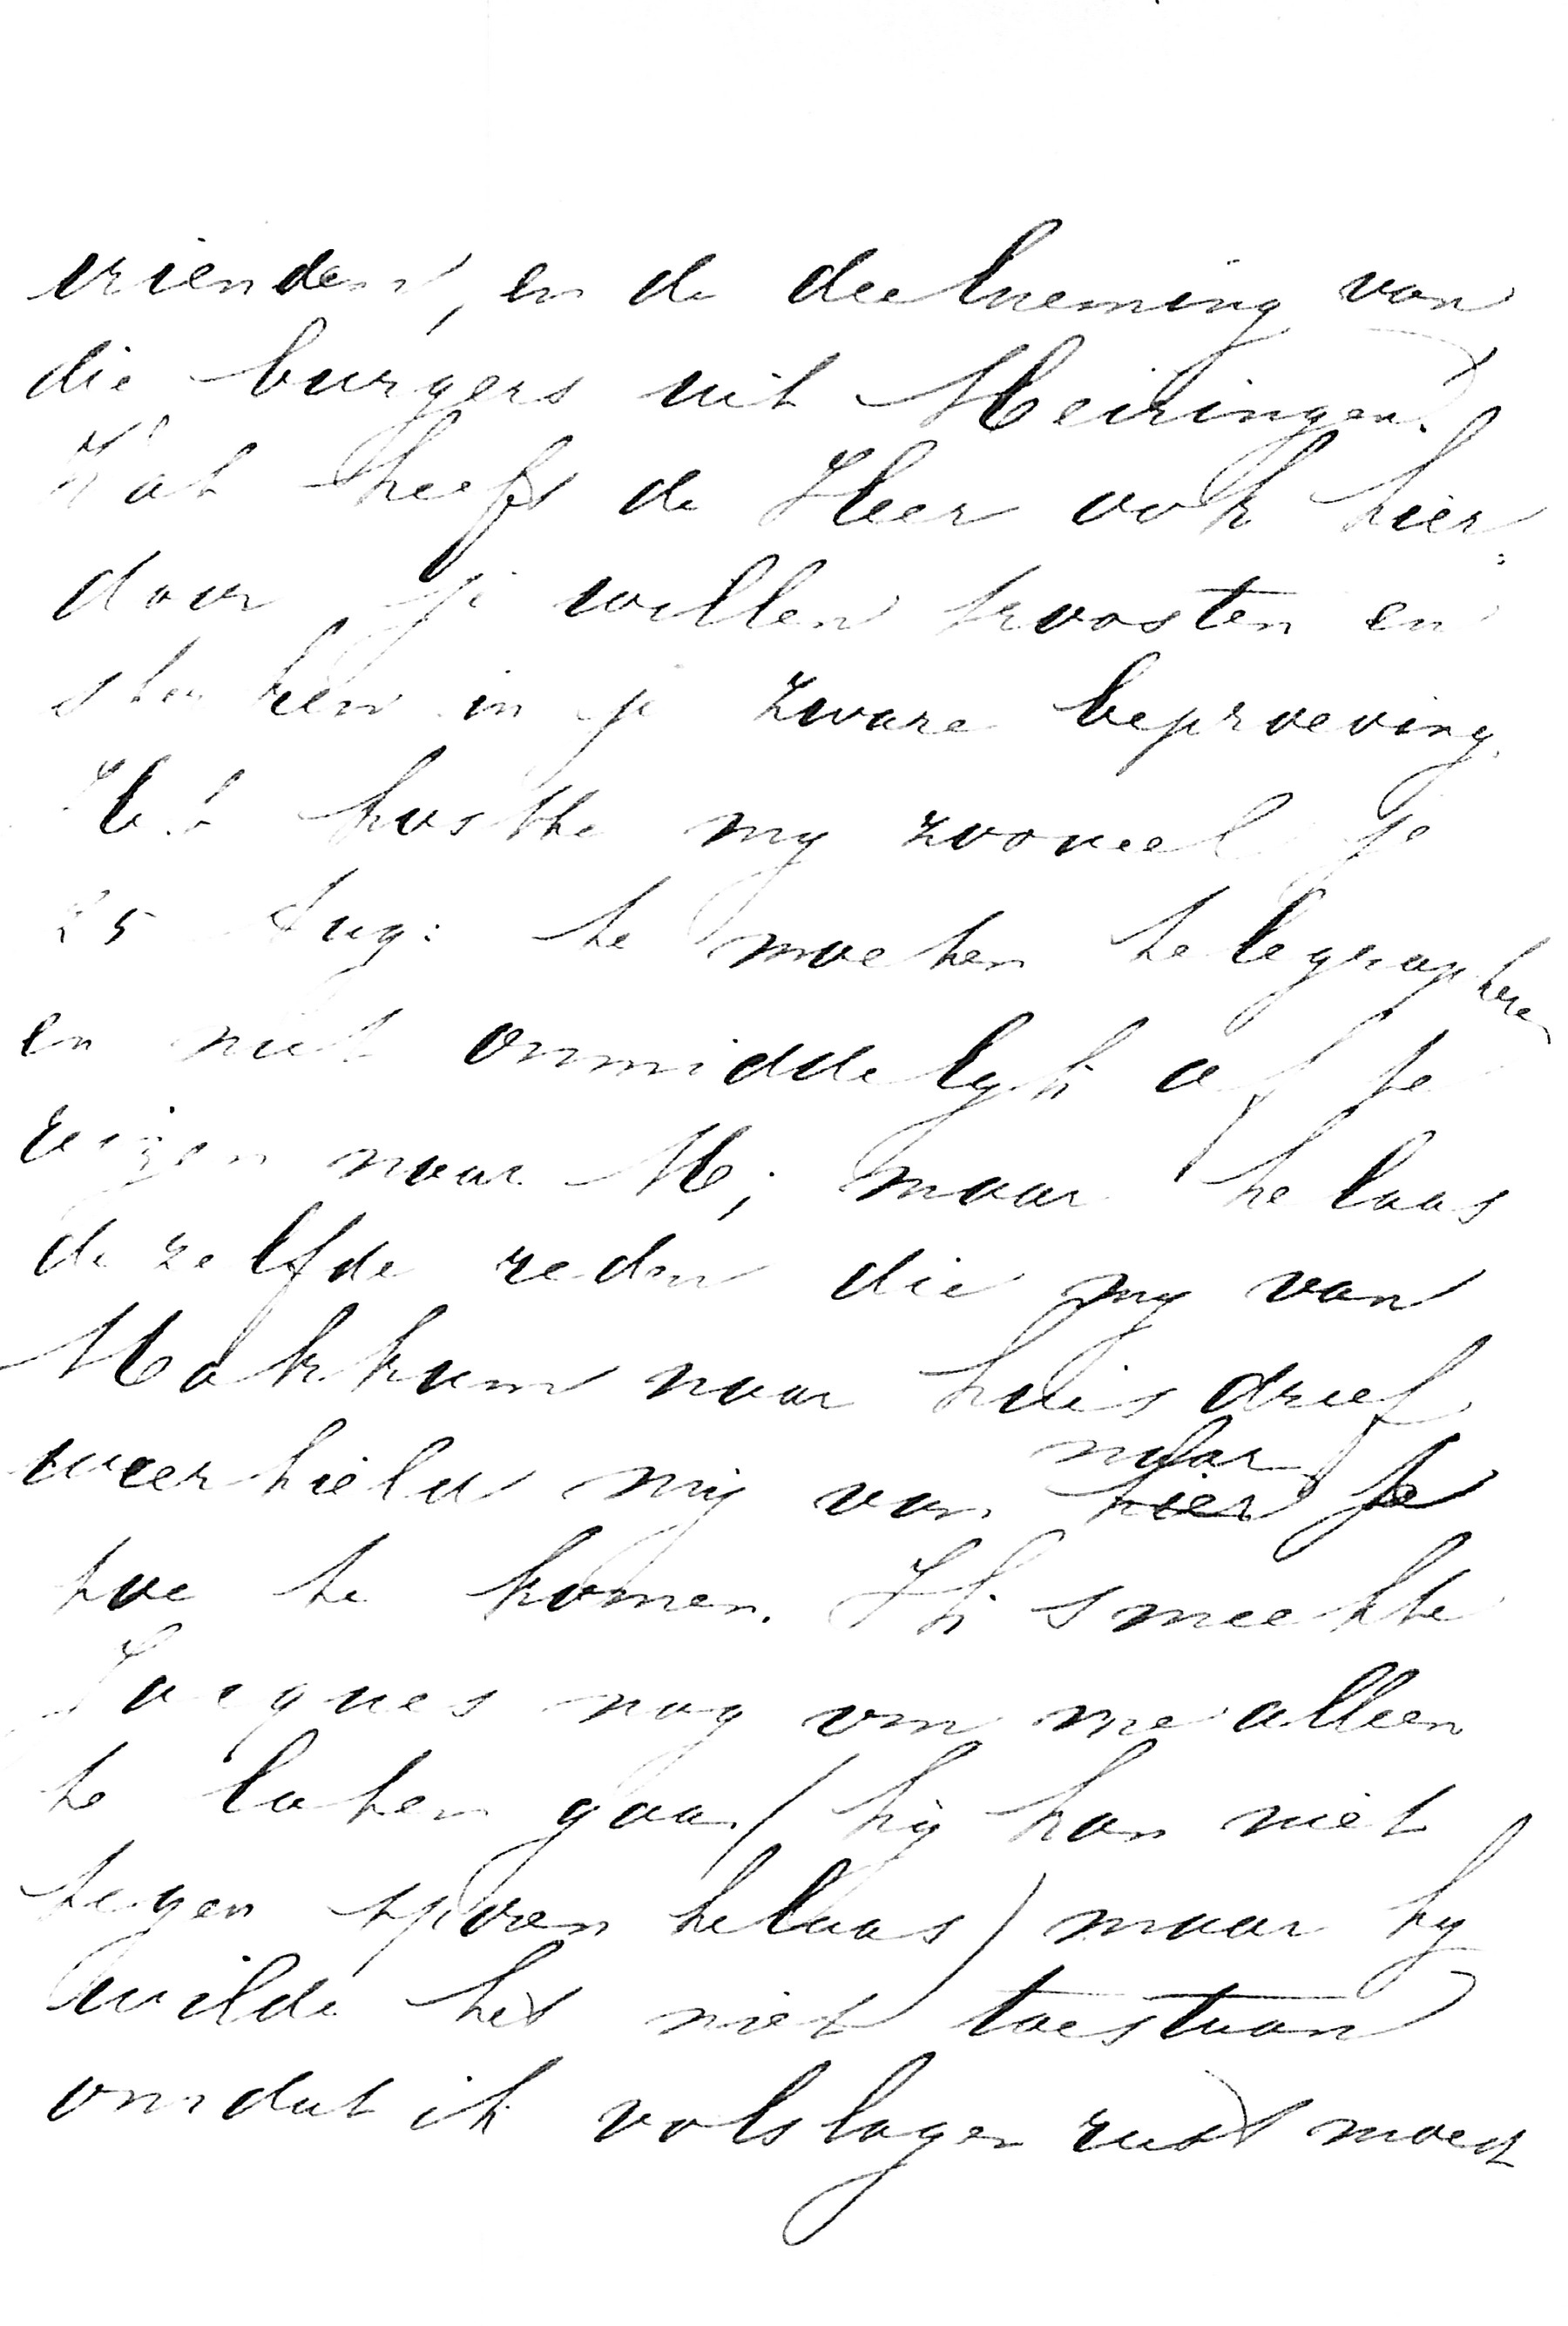 vrienden, en de deelneming van
die burgers uit Meiringen.
Wat heeft de Heer ook hier:
door je willen troosten en
sterken in je zware beproeving.
Het kostte my zooveel je
25 Aug: te moeten telegrapheren
en niet onmiddelyk af te
reizen naar M; maar helaas
dezelfde reden die my van
Makkum naar huis dreef
weerhield mij van hier je
naar
toe te komen. Ik smeekte
Jacques nog om me alleen
te laten gaan (hij kan niet
tegen sporen helaas) maar hy
wilde het niet toestaan
omdat ik volslagen rust moest